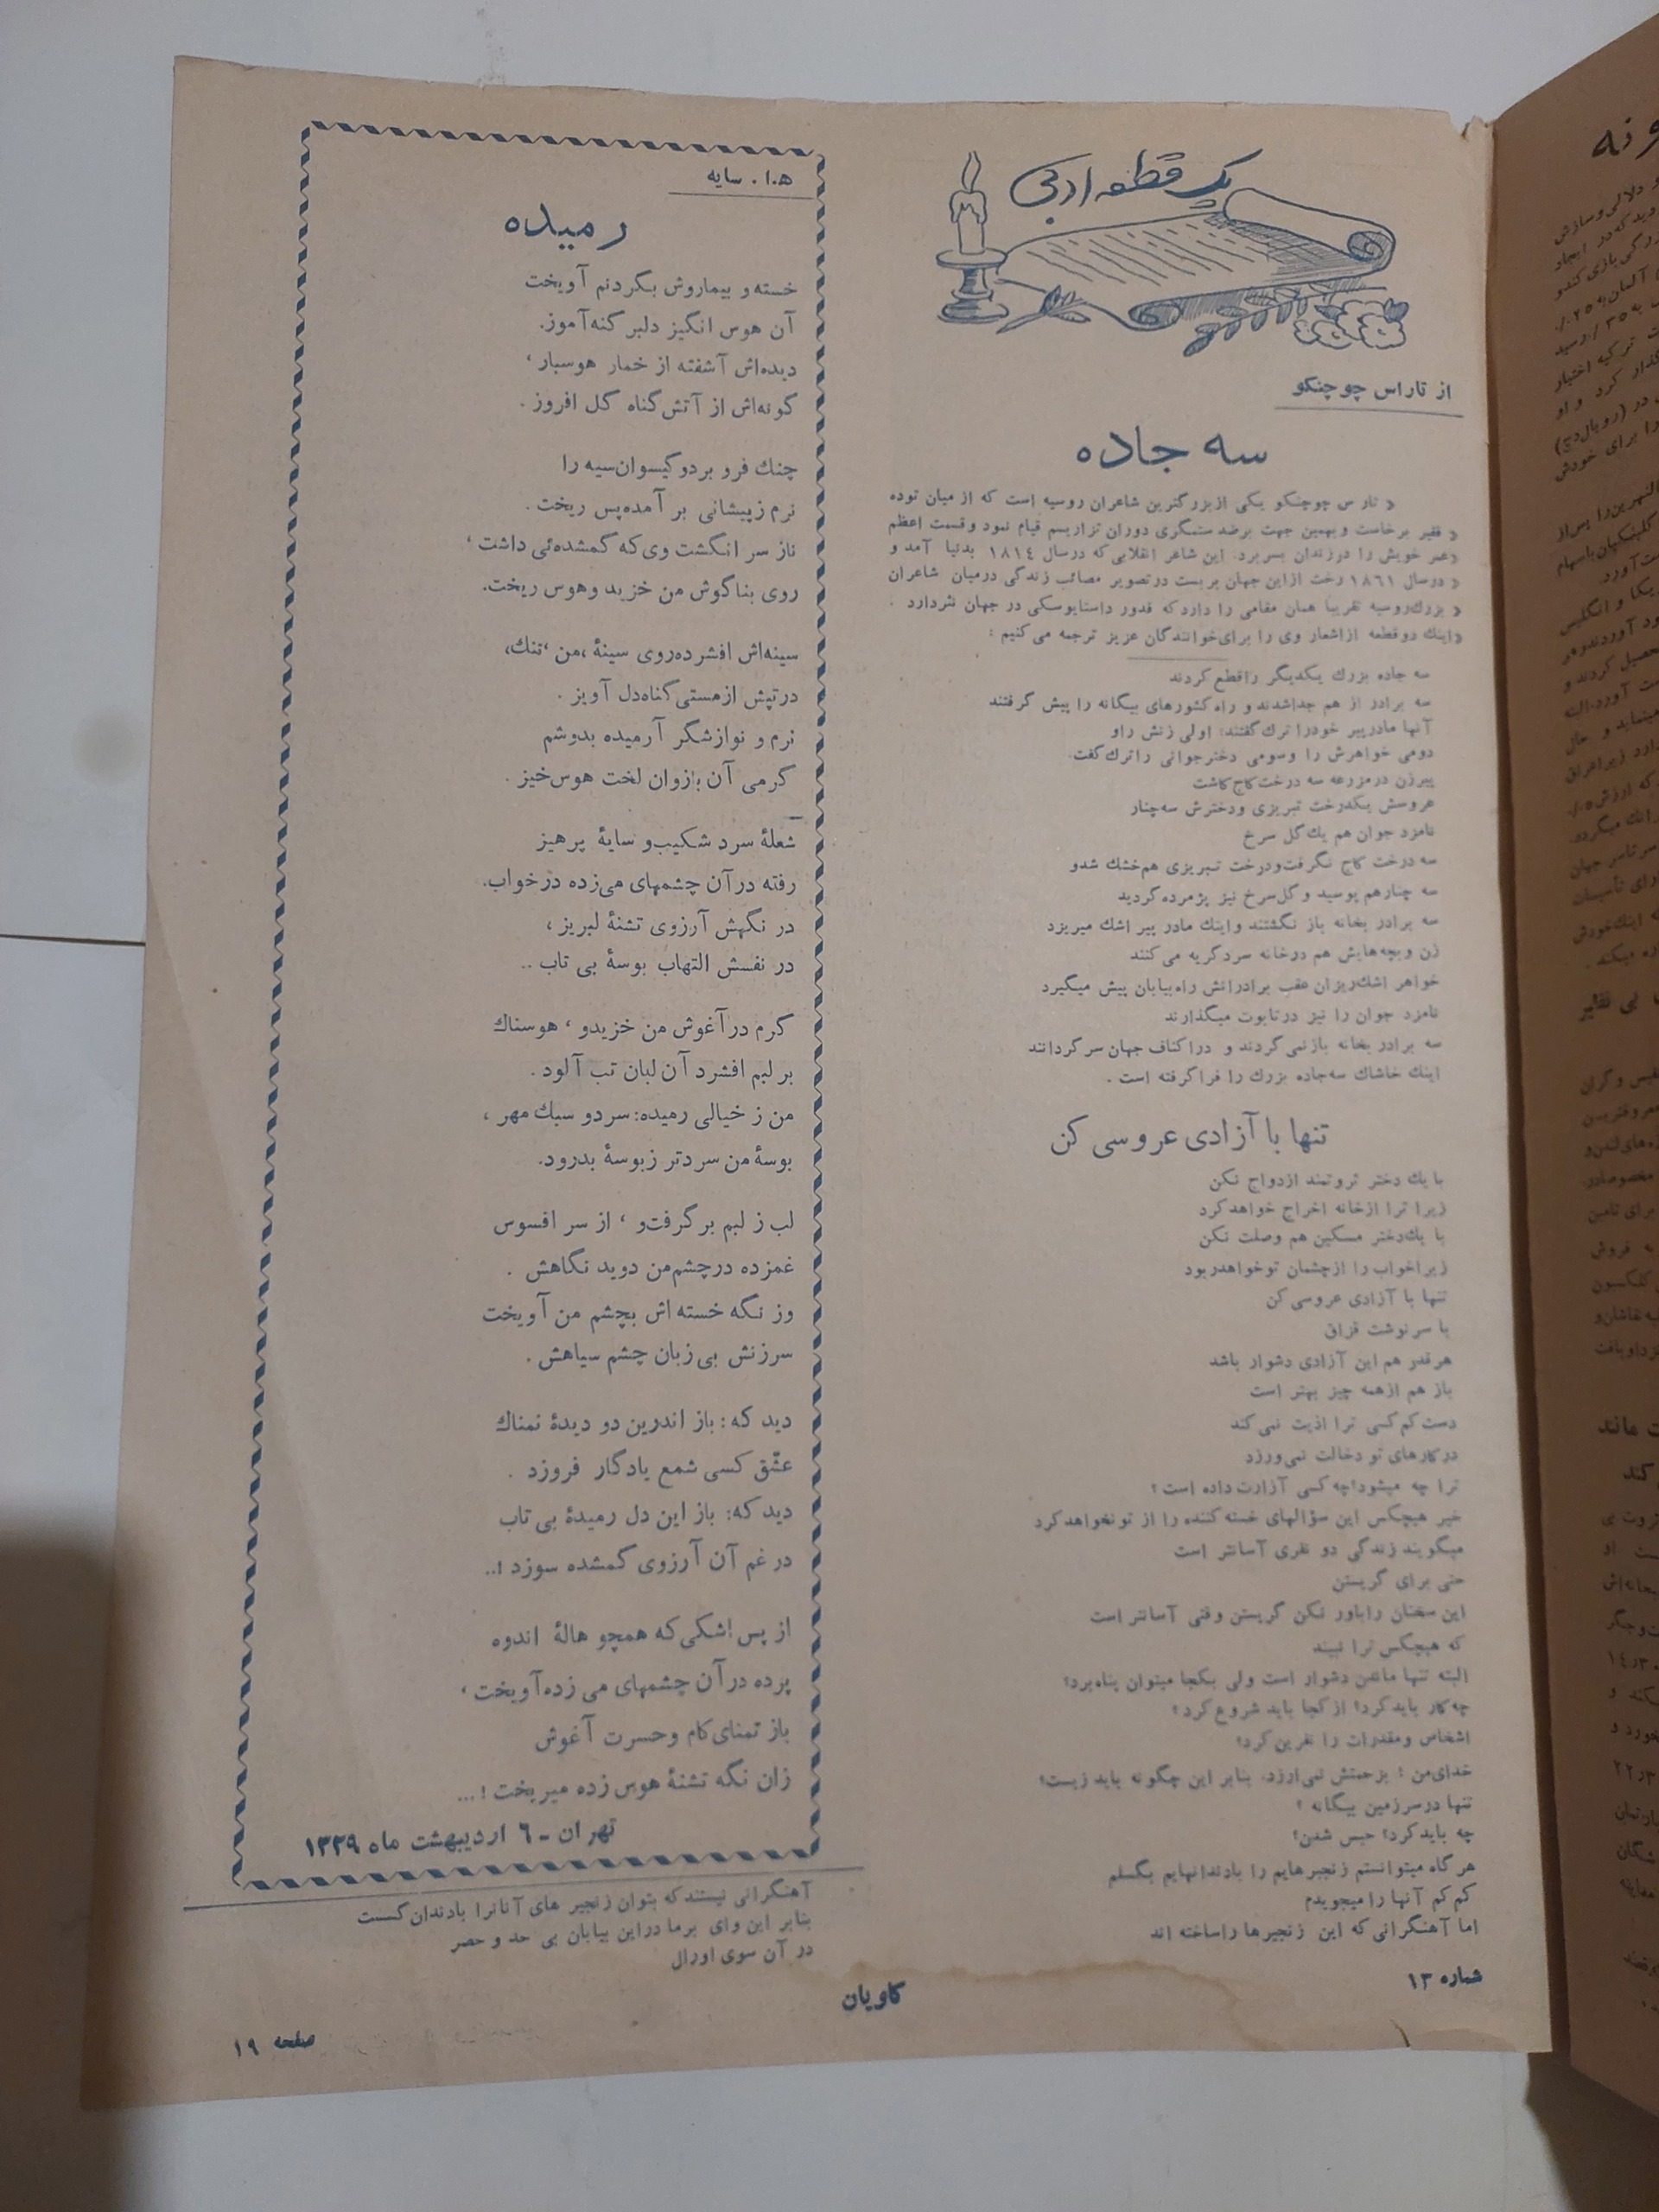 یک قطعه ادبی
از تاراس چوچنکو
سه جاده
« تارس چوچنکو یکی از بزرگترین شاعران روسیه است که از میان توده
« فقیر برخاست و بهمین جهت برضد ستمگری دوران تزاریسم قیام نمود و قسمت اعظم
« عمر خویش را در زندان بسر برد. این شاعر انقلابی که در سال ۱۸۱٤ بدنیا آمد و
« در سال ۱۸٦۱ رخت از این جهان بر بست در تصویر مصائب زندگی در میان شاعران
« بزرك روسیه تقریباً همان مقامی را دارد که فدور داستایوسکی در جهان نثر دارد .
« اینك دو قطعه از اشعار وی را برای خوانندگان عزیز ترجمه می کنیم :
سه جاده بزرك یکدیگر را قطع کردند
سه برادر از هم جدا شدند و راه کشورهای بیگانه را پیش گرفتند
آنها مادر پیر خود را ترك گفتند: اولی زنش را و
دومی خواهرش را و سومی دختر جوانی را ترك گفت.
پیرزن در مزرعه سه درخت کاج کاشت
عروسش یکدرخت تبریزی و دخترش سه چنار
نامزد جوان هم یك گل سرخ
سه درخت کاج نگرفت و درخت تبریزی هم خشك شد و
سه چنار هم پوسید و گل سرخ نیز پژمرده گردید
سه برادر بخانه باز نگشتند و اینك مادر پیر اشك میریزد
زن و بچه هایش هم در خانه سرد گریه می کنند
خواهر اشك ریزان عقب برادرانش راه بیابان پیش میگیرد
نامزد جوان را نیز در تابوت میگذارند
سه برادر بخانه باز نمی گردند و در اکناف جهان سر گردانند
اینك خاشاك سه جاده بزرك را فرا گرفته است .
تنها با آزادی عروسی کن
با یك دختر ثروتمند ازدواج نکن
زیرا ترا از خانه اخراج خواهد کرد
با یك دختر مسکین هم وصلت نکن
زیرا خواب را از چشمان تو خواهد ربود
تنها با آزادی عروسی کن
با سرنوشت قزاق
هر قدر هم این آزادی دشوار باشد
باز هم از همه چیز بهتر است
دست کم کسی ترا اذیت نمی کند
در کارهای تو دخالت نمی ورزد
ترا چه میشود؟ چه کسی آزارت داده است ؟
خیر هیچکس این سؤالهای خسته کننده را از تو نخواهد کرد
میگویند زندگی دو نفری آسانتر است
حتی برای گریستن
این سخنان را باور نکن گریستن وقتی آسانتر است
که هیچکس ترا نبیند
البته تنها ماندن دشوار است ولی بکجا میتوان پناه برد؟
چه کار باید کرد؟ از کجا باید شروع کرد ؟
اشخاص و مقدرات را نفرین کرد؟
خدای من ! بزحمتش نمی ارزد. بنابر این چگونه باید زیست؟
تنها در سرزمین بیگانه ؟
چه باید کرد؟ حبس شدن؟
هر گاه میتوانستم زنجیرهایم را با دندانهایم بگسلم
کم کم آنها را میجویدم
اما آهنگرانی که این زنجیرها را ساخته اند
شماره ۱۳
ه.ا. سایه
رمیده
خسته و بیماروش بگردنم آویخت
آن هوس انگیز دلبر گنه آموز.
دیده اش آشفته از خمار هوسبار ،
گونه اش از آتش گناه گل افروز .
چنك فرو برد و گیسوان سیه را
نرم ز پیشانی بر آمده پس ریخت .
ناز سر انگشت وی که گمشده ئی داشت ،
روی بناگوش من خزید و هوس ریخت.
سینه اش افشرده روی سینۀ ،من ،تنك،
در تپش از مستی گناه دل آویز .
نرم و نوازشگر آرمیده بدوشم
گرمی آن بازوان لخت هوس خیز .
شعلۀ سرد شکیب و سایۀ پرهیز
رفته در آن چشمهای می زده در خواب.
در نگهش آرزوی تشنۀ لبریز ،
در نفسش التهاب بوسۀ بی تاب ..
گرم در آغوش من خزید و ، هوسناك
بر لبم افشرد آن لبان تب آلود .
من ز خیالی رمیده: سرد و سبك مهر ،
بوسۀ من سردتر ز بوسۀ بدرود.
لب ز لبم بر گرفت و ، از سر افسوس
غمزده در چشم من دوید نگاهش .
وز نگه خسته اش بچشم من آویخت
سرزنش بی زبان چشم سیاهش .
دید که : باز اندرین دو دیدۀ نمناك
عشق کسی شمع یادگار فروزد .
دید که: باز این دل رمیدۀ بی تاب
در غم آن آرزوی گمشده سوزد !..
از پس اشکی که همچو هالۀ اندوه
پرده در آن چشمهای می زده آویخت ،
باز تمنای کام و حسرت آغوش
زان نگه تشنۀ هوس زده میریخت ! ...
تهران - ٦ اردیبهشت ماه ۱۳۳۹
آهنگرانی نیستند که بتوان زنجیر های آنانرا با دندان گسست
بنابر این وای برما در این بیابان بی حد و حصر
در آن سوی اورال
کاویان
صفحه ۱۹